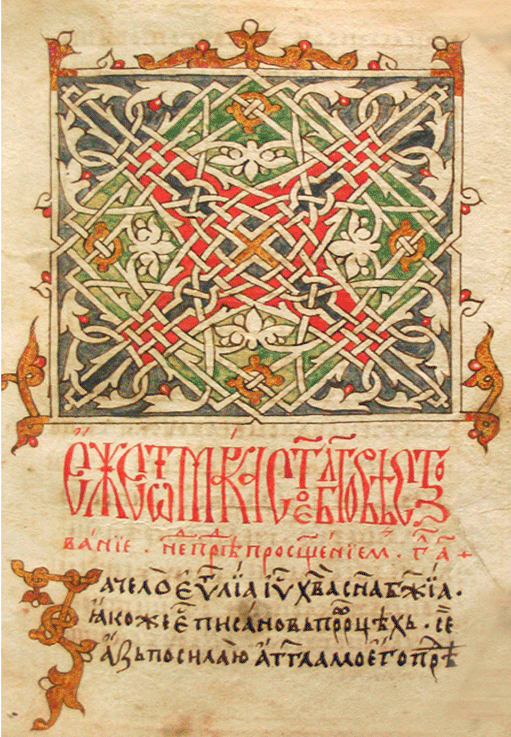 Е҆же ѿ Мр҃ка ст҃ое бл҃говѣсто
ванїе . неⷣ прⷣѣ просщ҃енїем . г҃ а҃ +
Зачело еѵ҃лїа іѵ҃ хв҃а сн҃а бж҃їа .
ꙗкоже е҃ писано въ прⷪ҇рцѣхь . се
азь посилаю агг҃ла моего прⷣѣ